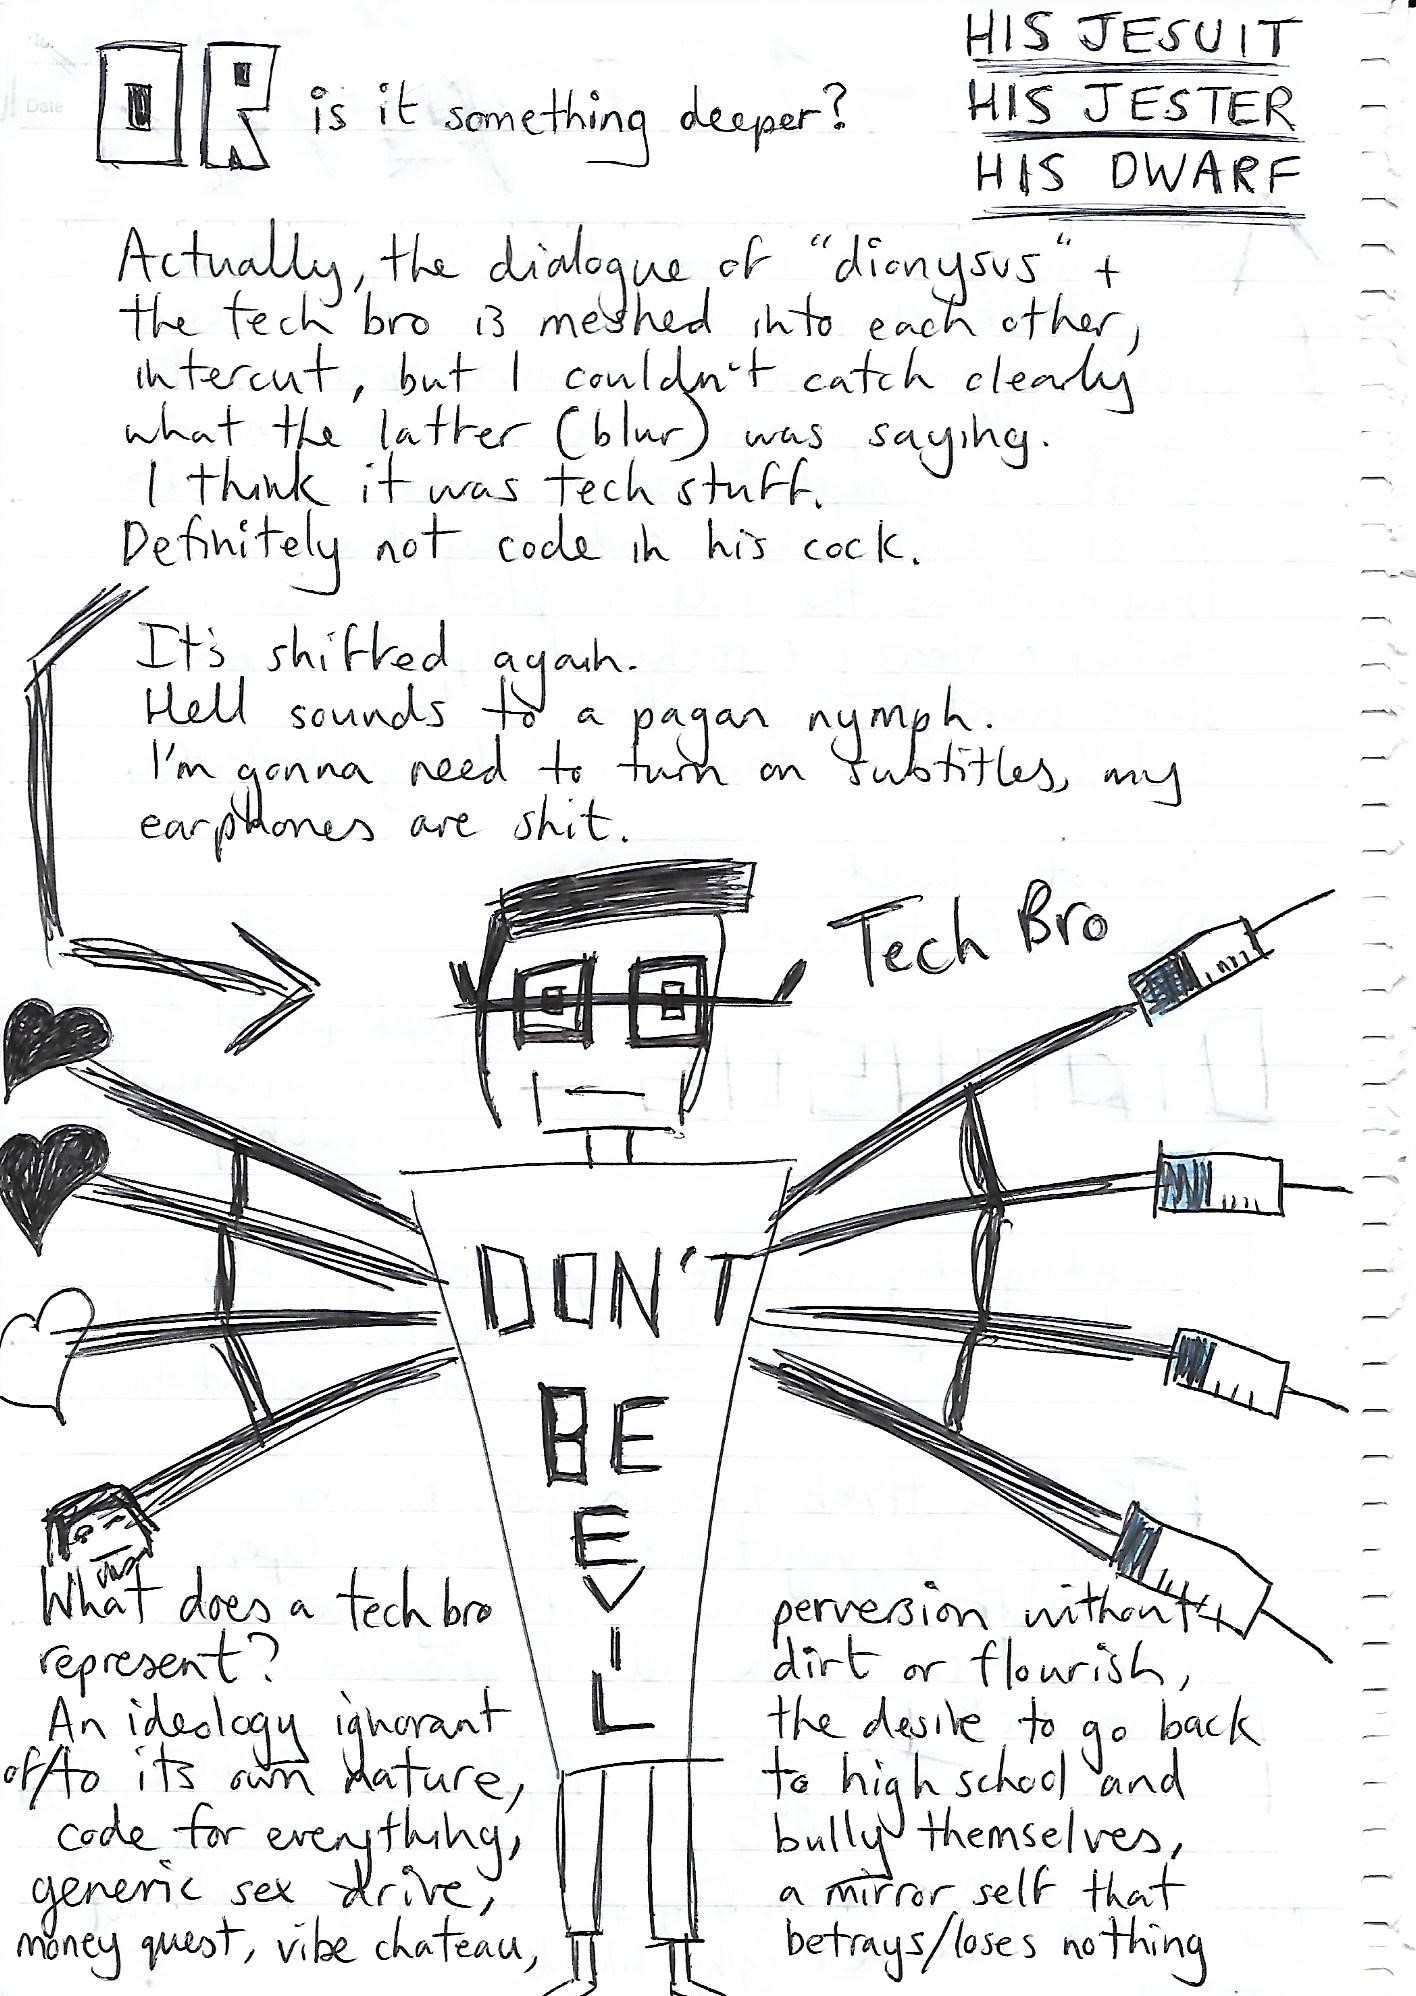 OR is it something deeper?
HIS JESUIT
HIS JESTER
HIS DWARF
Actually, the dialogue of "dionysus" +
the tech bro is meshed into each other,
intercut, but I couldn't catch clearly
what the latter (blur) was saying.
I think it was tech stuff.
Definitely not code in his cock.
It's shifted again.
Hell sounds to a pagan nymph.
I'm gonna need to turn on subtitles, my
earphones are shit.
Tech Bro
DON'T
BE
E
V
I
L
What does a tech bro
represent?
An ideology ignorant
of/to its own nature,
code for everything,
generic sex drive,
money quest, vibe chateau,
perversion without
dirt or flourish,
the desire to go back
to high school and
bully themselves,
a mirror self that
betrays/loses nothing
No.
Date